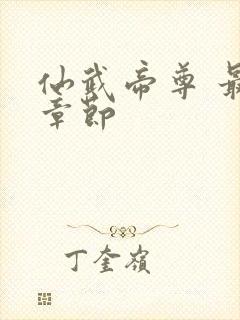 仙武帝尊 最
章節
丁奎嶺